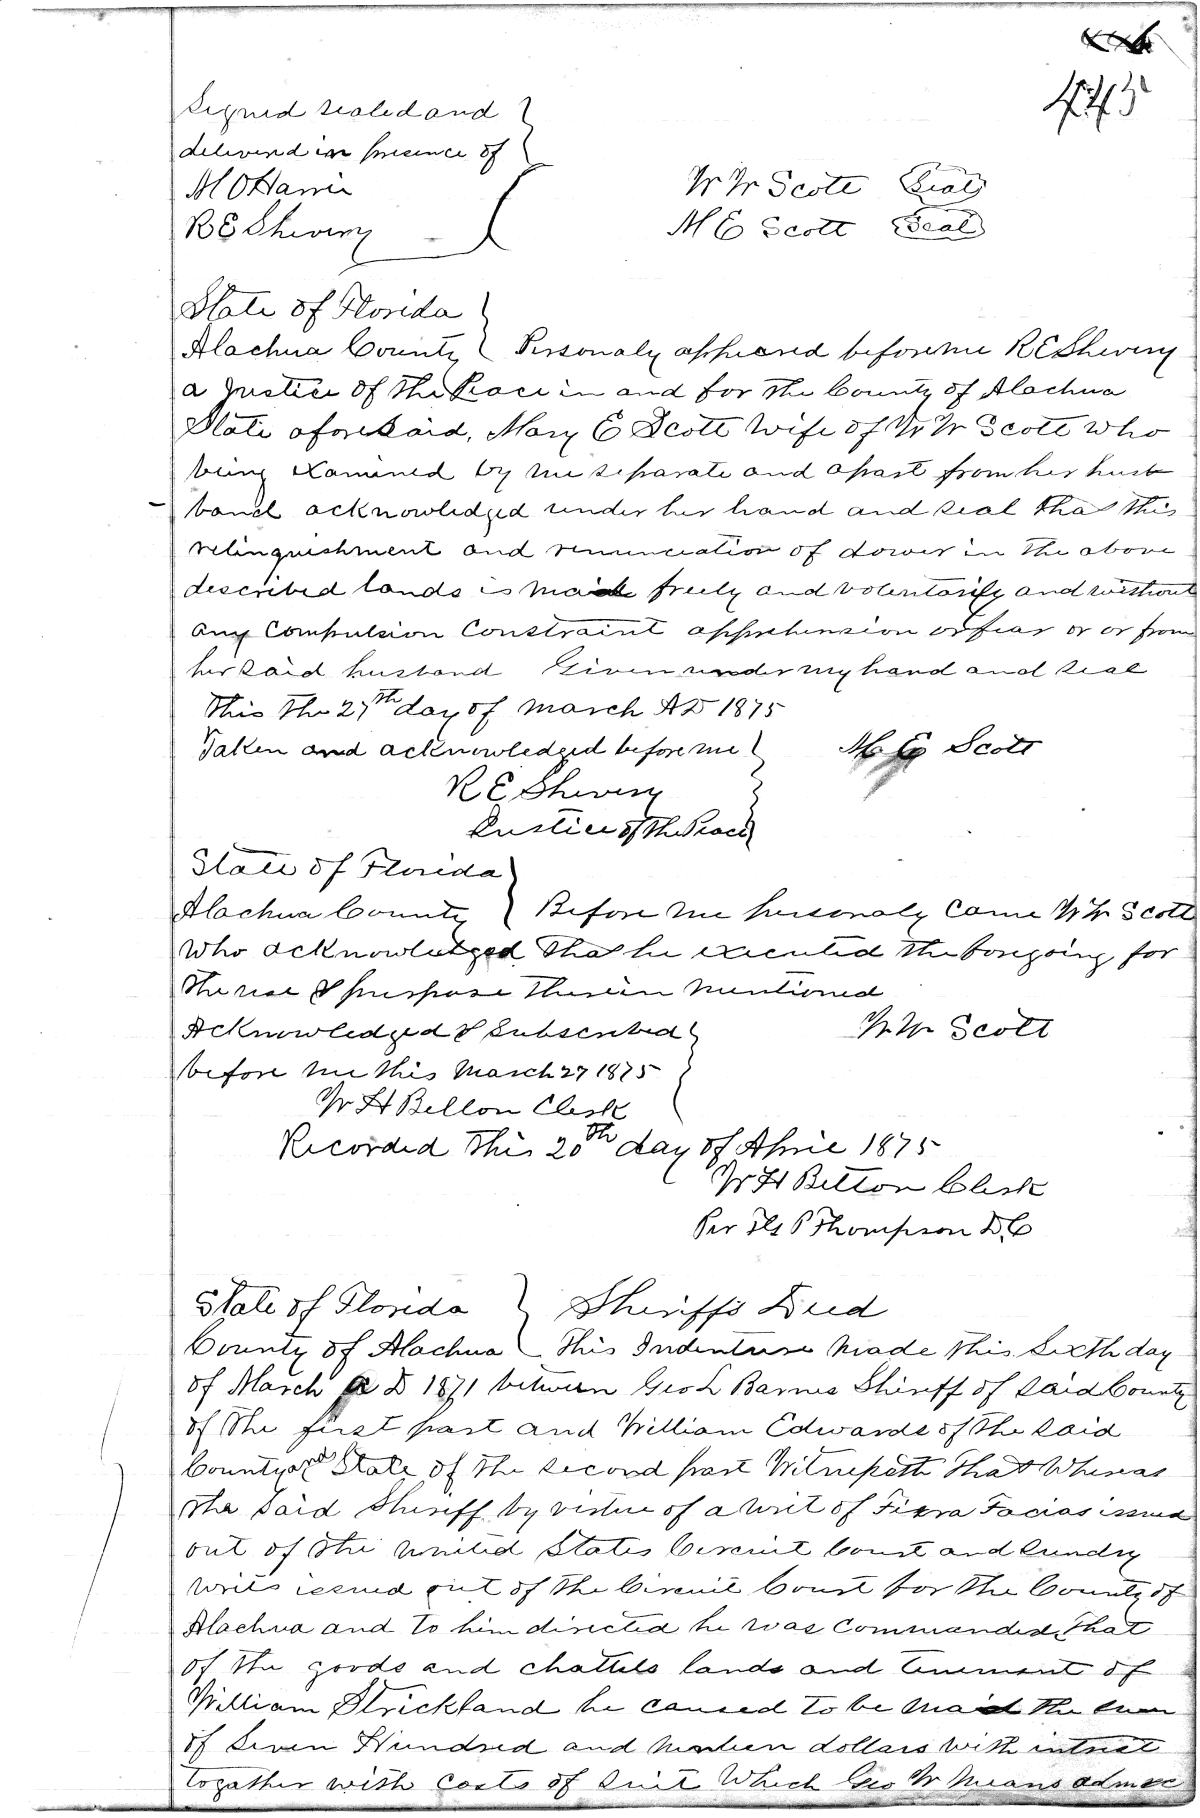 443
Signed sealed and
delivered in presence of
M O Harris
W W Scott Seal
R E Shivery
M E Scott Seal
State of Florida
Alachua County Personaly appeared before me R E Shivery
a Justice of the Peace in and for the County of Alachua
State aforesaid, Mary E Scott Wife of W W Scott who
being examined by me separate and apart from her hus
band acknowledged under her hand and seal that this
relinquishment and renunciation of dower in the above
described lands is made freely and volentarily and without
any Compulsion Constraint apprehension or fear or or from
her said husband Given under my hand and seal
this the 27th day of March AD 1875
Taken and acknowledged before me
M E Scott
R E Shivery
Justice of the Peace
State of Florida
Alachua County Before me personaly Came W W Scott
Who acknowledged that he executed the foregoing for
the use & purpose therein mentioned
Acknowledged & Subscribed
W W Scott
before me this March 27 1875
W H Belton Clerk
Recorded this 20th day of April 1875
W H Belton Clerk
Per P Thompson D.C
State of Florida Sheriff's Deed
County of Alachua This Indenture made this Sixth day
of March A D 1871 between Geo L Barnes Sheriff of said County
of the first part and William Edwards of the said
County and State of the second part Witnesseth that Whereas
the Said Sheriff by virtue of a writ of Fiera Facias issued
out of the United States Circuit Court and Sundry
writs issued out of the Circuit Court for the County of
Alachua and to him directed he was Commanded, that
of the goods and chattels lands and tenement of
William Strickland he caused to be made the sum
of Seven Hundred and dollars with intrest
togather with costs of Suit Which Geo W Means